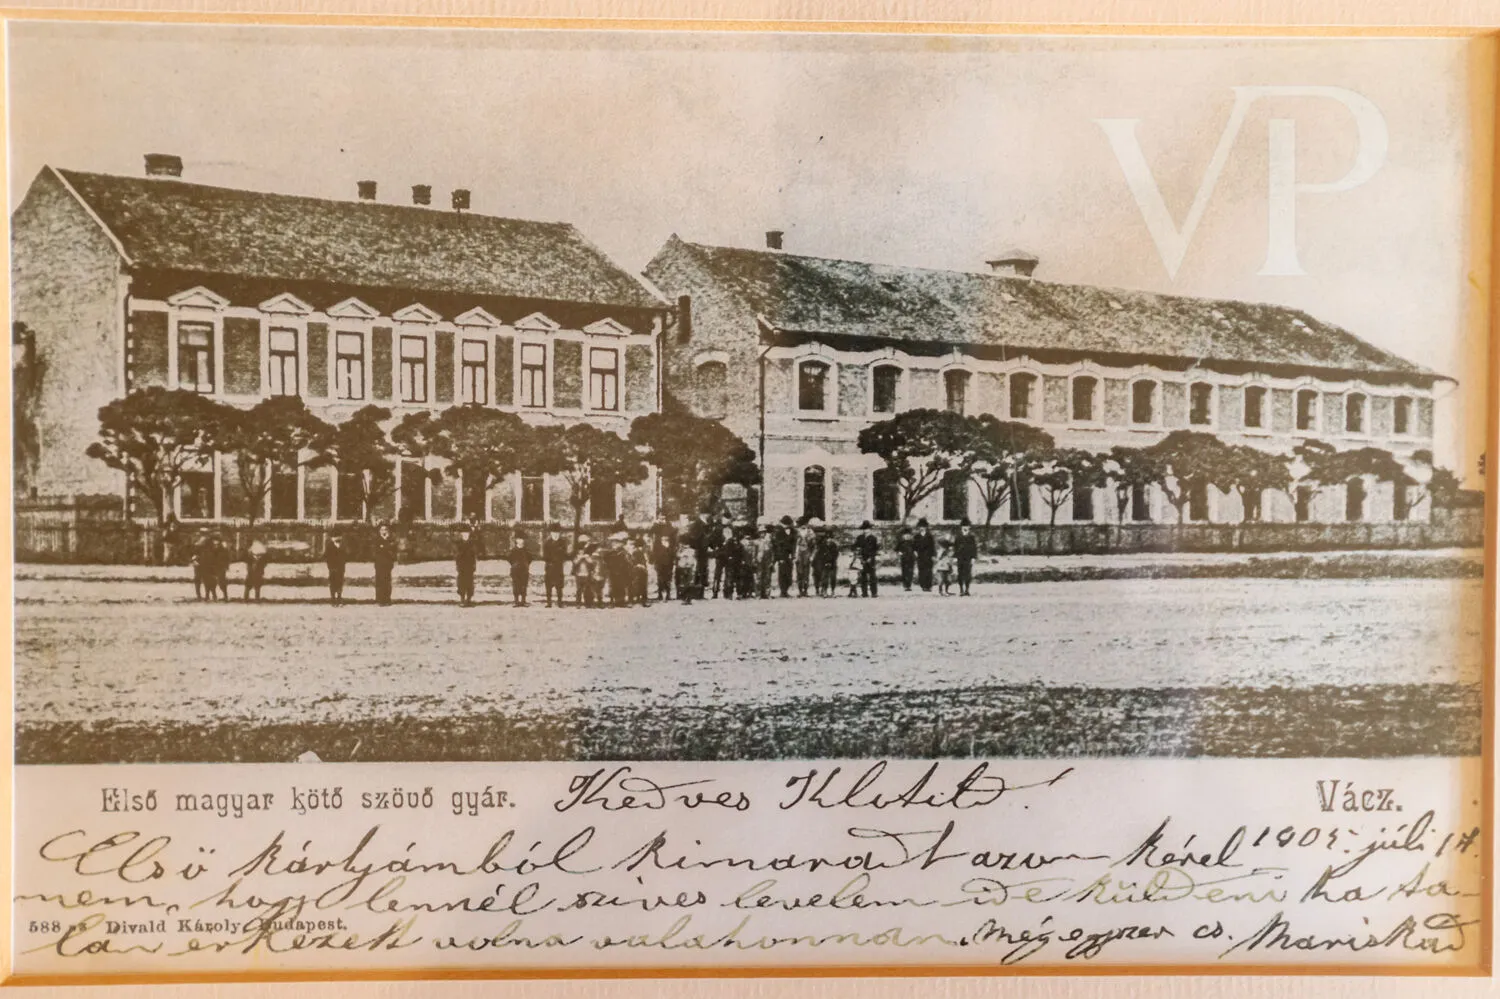 VP
Első magyar kötő szövő gyár. Kedves Klotild! Vácz.
1905. júli 17.
Első kártyámból kimaradt azon kérel
mem, hogy lennél szives levelem ide küldeni ha ta-
588 Divald Károly, Budapest.
lán érkezett volna valahonnan. Mégegyszer cs. Mariskád